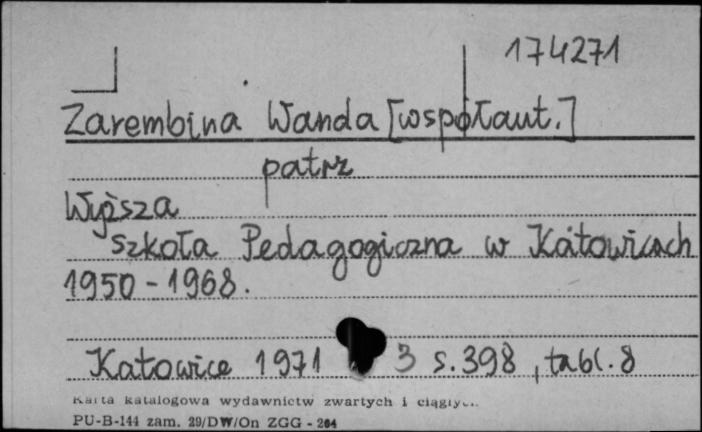 174271
Zarembina Wanda [współaut.]
patrz
Wyższa
szkoła Pedagogiczna w Katowicach
1950-1968.
Katowice 1971 3 s.398, tabl. 8
Karta katalogowa wydawnictw zwartych i
PU-B-144 zam. 29/DW/On ZGG - 264